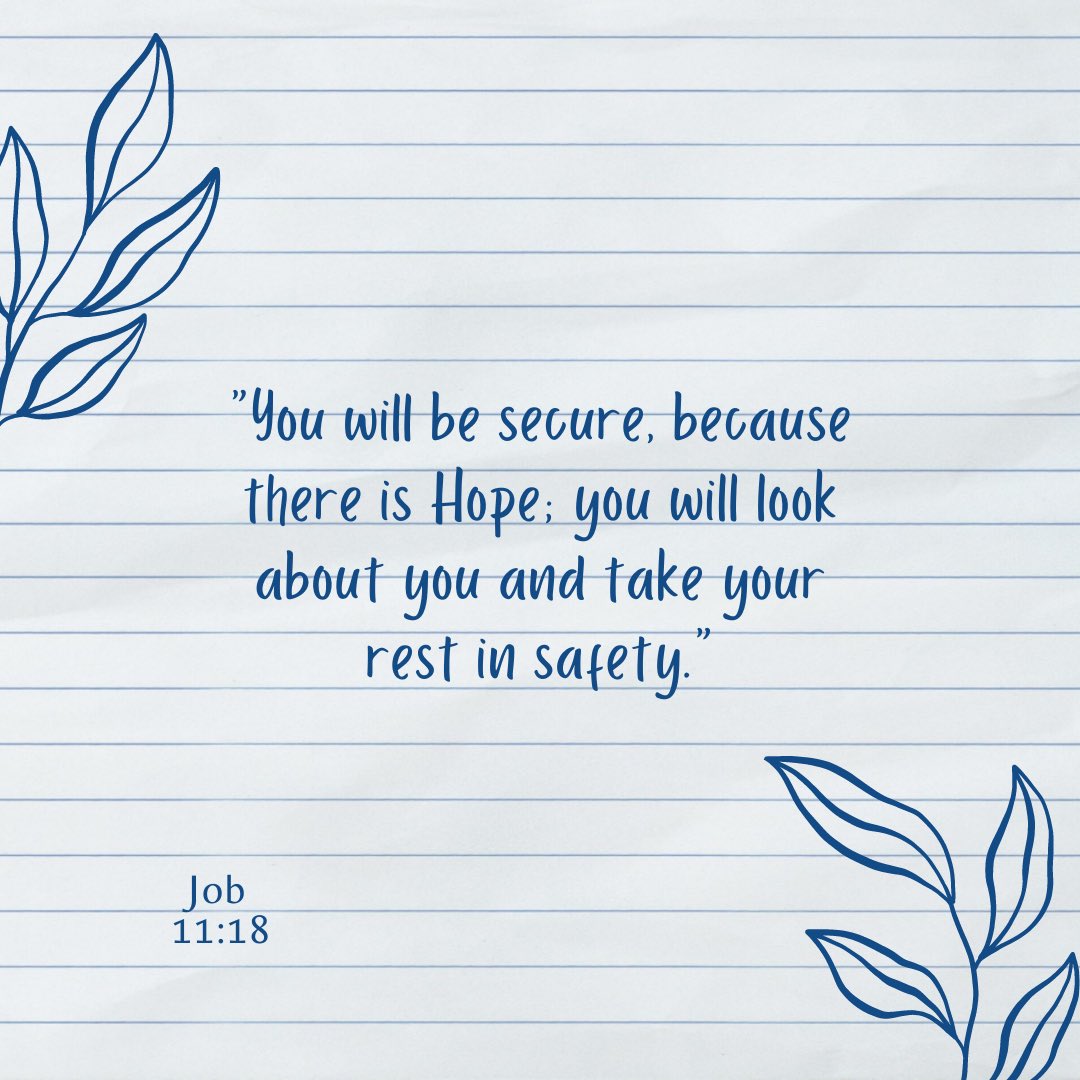 ”You will be secure, because
there is Hope; you will look
about you and take your
rest in safety.”
Job
11:18